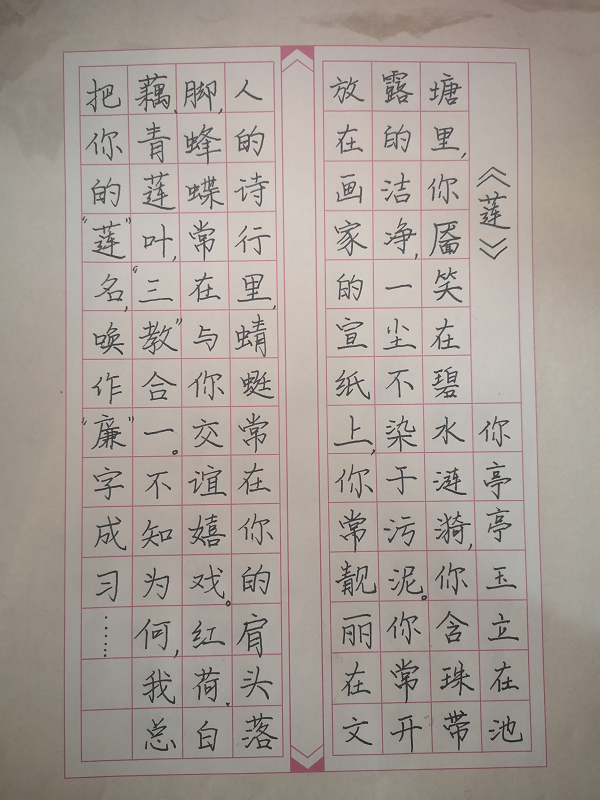 《莲》
你亭亭玉立在池
塘里,你靥笑在碧水涟漪,你含珠带
露的洁净,一尘不染于污泥。你常开
放在画家的宣纸上,你常靓丽在文
人的诗行里,蜻蜓常在你的肩头落
脚,蜂蝶常在与你交谊嬉戏。红荷、白
藕、青莲叶,“三教”合一。不知为何,我总
把你的“莲”名,唤作“廉”字成习……